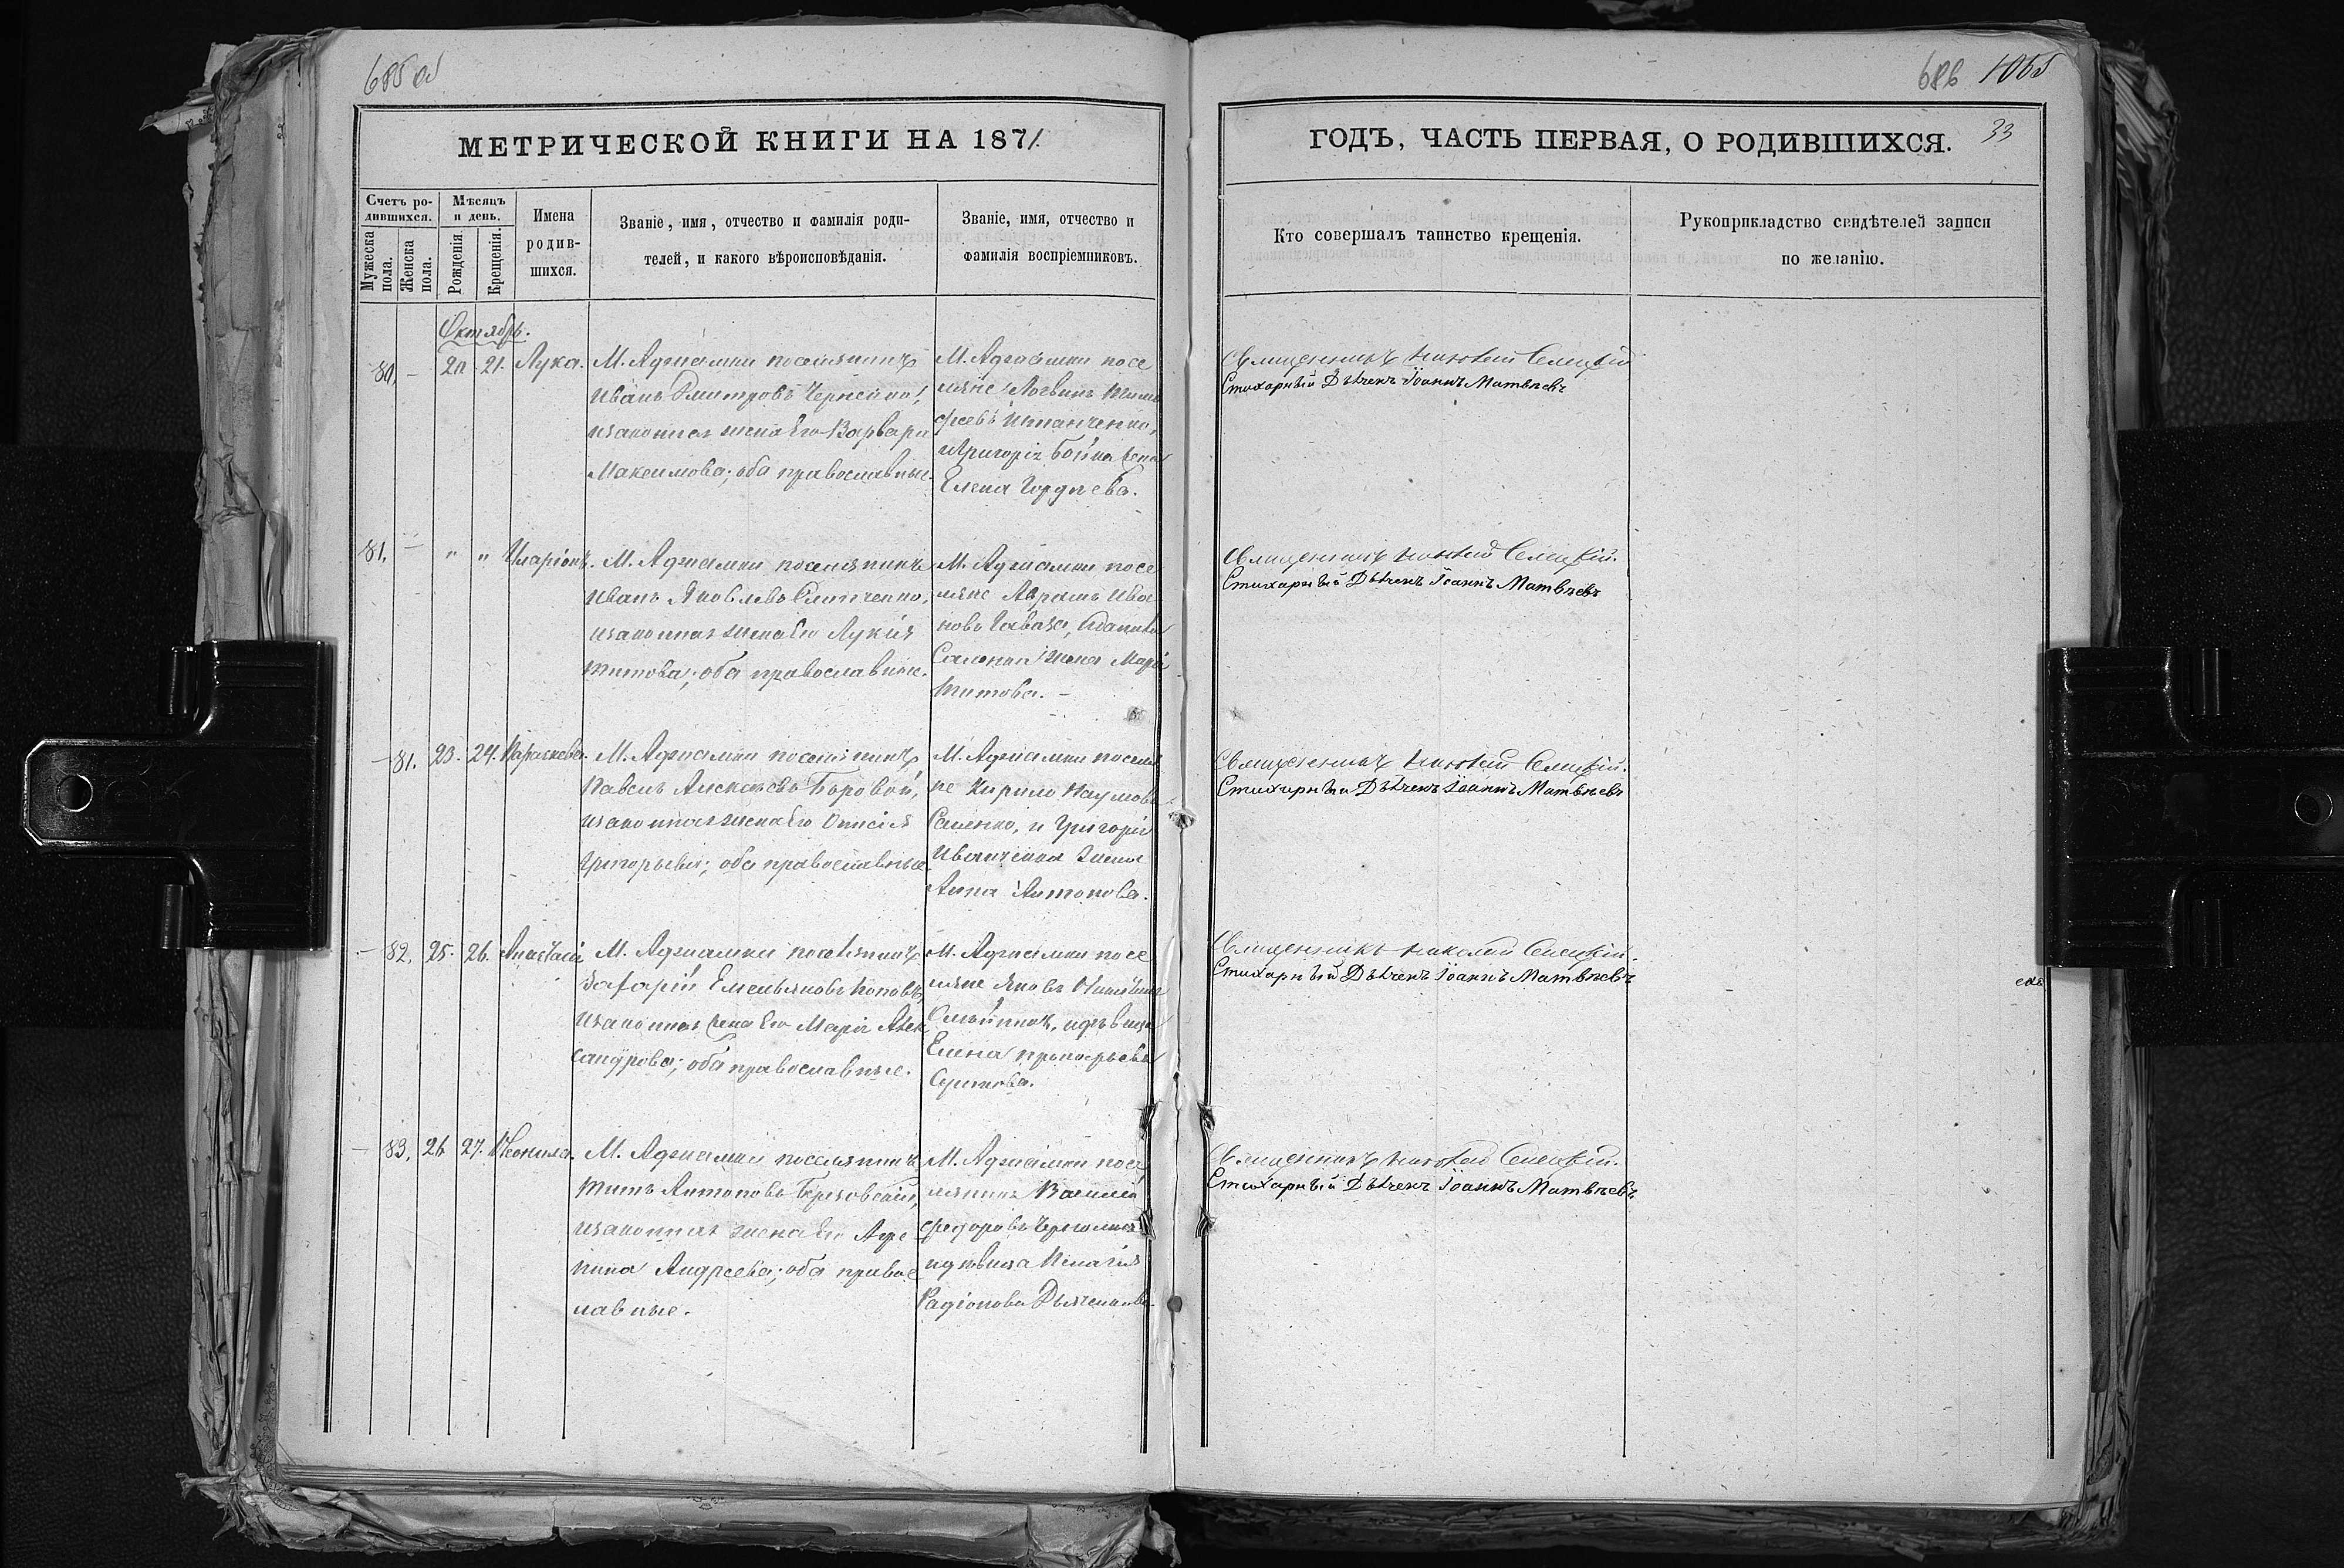 685 об
МЕТРИЧЕСКОЙ КНИГИ НА 1871
Счетъ ро-
дившихся.
Мужеска
пола.
Женска
пола.
Мѣсяцъ
и день.
Рожденія.
Крещенія.
Имена
родив-
шихся.
Званіе, имя, отчество и фамилія роди-
телей, и какого вѣроисповѣданія.
Званіе, имя, отчество и
фамилія воспріемниковъ.
Октябрь.
80. - 20 21. Лука.
М. Аджамки поселянинъ
Иванъ Дмитровъ
изаконная жена его Варвара
Максимова; оба православные.
М. Аджамки посе
ляне Логвинъ
иГригорія Бойка жена
Елена Гордѣева.
81. - " " Иларіонъ.
М. Аджамки поселянинъ
Иванъ Яковлевъ
изаконная жена его Лукія
Титова; оба православные.
М. Аджамки посе
ляне Аврамъ Ива
новъ
жена Марія
Титова. -
- 81. 23. 24. Параскева.
М. Аджамки поселянинъ
Павелъ Алексѣевъ Боровой,
изаконная жена его Анисія
Григорьева; оба православные
М. Аджамки поселя
не Кирило Наумовъ
Саленко, и Григорія
Иванченка жена
Анна Антонова.
- 82. 25. 26. Анастасія
М. Аджамки поселянинъ
Захарій Емельяновъ Поповъ,
изаконная жена его Марія Алек
сандрова; оба православные.
М. Аджамки посе
ляне Яковъ
Олѣйникъ, идѣвица
Елена
- 83. 26 27. Неонила.
М. Аджамки поселянинъ
Титъ Антоновъ Березовскій,
изаконная жена его Агре
пина Андреева; оба правос
лавные.
М. Аджамки посе
лянинъ Василій
Федоровъ
идѣвица Пелагія
Радіонова Дьяченкова.
686 106об
ГОДЪ, ЧАСТЬ ПЕРВАЯ, О РОДИВШИХСЯ. 33
Кто совершалъ таинство крещенія.
Рукоприкладство свидѣтелей записи
по желанію.
Священникъ Николай Селецкій
Стихарный Дьячекъ Іоаннъ Матвѣевъ
Священникъ Николай Селецкій.
Стихарный Дьячекъ Іоаннъ Матвѣевъ
Священникъ Николай Селецкій.
Стихарный Дьячекъ Іоаннъ Матвѣевъ
Священникъ Николай Селецкій.
Стихарный Дьячекъ Іоаннъ Матвѣевъ
Священникъ Николай Селецкій.
Стихарный Дьячекъ Іоаннъ Матвѣевъ